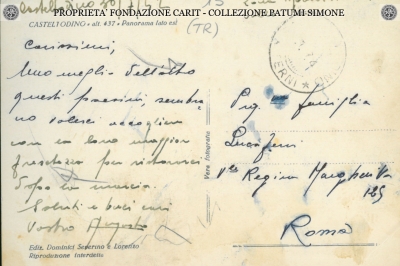 PROPRIETÀ FONDAZIONE CARIT - COLLEZIONE PATUMI SIMONE
CASTELTODINO - alt. 437 - Panorama lato est
(TR)
Carissimi,
Uno meglio dell'altro
questi paesini, sembra
no volerci accogliere
con la loro maggior
freschezza per ristorarci
dopo la marcia.
Saluti e baci cari
Vostro Augusto
Ediz. Dominici Severino e Lorenzo
Riproduzione Interdetta
Vera fotografia
TERNI
Preg. famiglia
V.le Regina Margherita
Roma